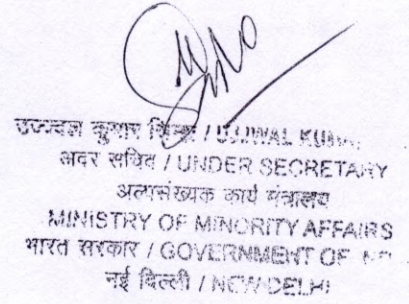 उज्ज्वल कुमार / UJJWAL
अवर सचिव / UNDER SECRETARY
अल्पसंख्यक कार्य मंत्रालय
MINISTRY OF MINORITY AFFAIRS
भारत सरकार / GOVERNMENT OF
नई दिल्ली / NEW DELHI